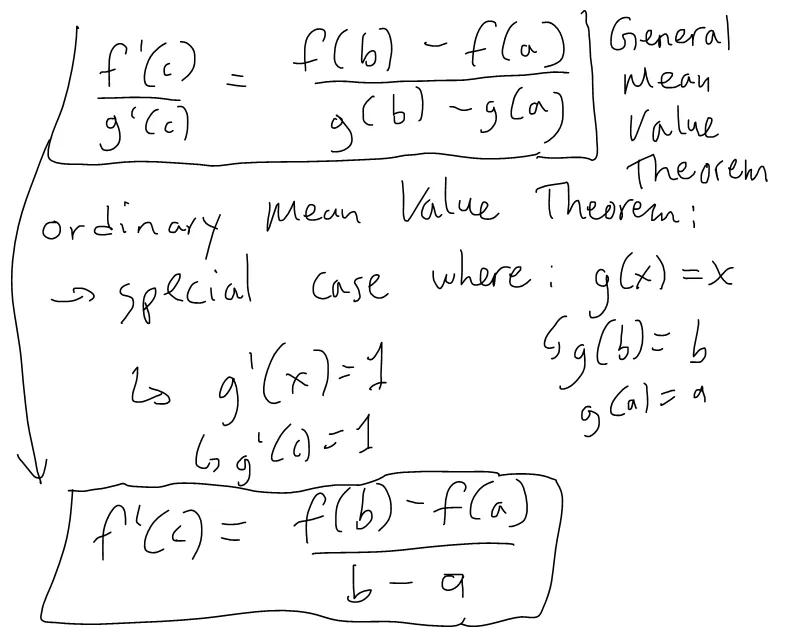 f'(c)/g'(c) = (f(b) - f(a))/(g(b) - g(a))
General
Mean
Value
Theorem
ordinary Mean Value Theorem:
→ special case where: g(x) = x
↳ g(b) = b
g(a) = a
↳ g'(x) = 1
↳ g'(c) = 1
f'(c) = (f(b) - f(a))/(b - a)